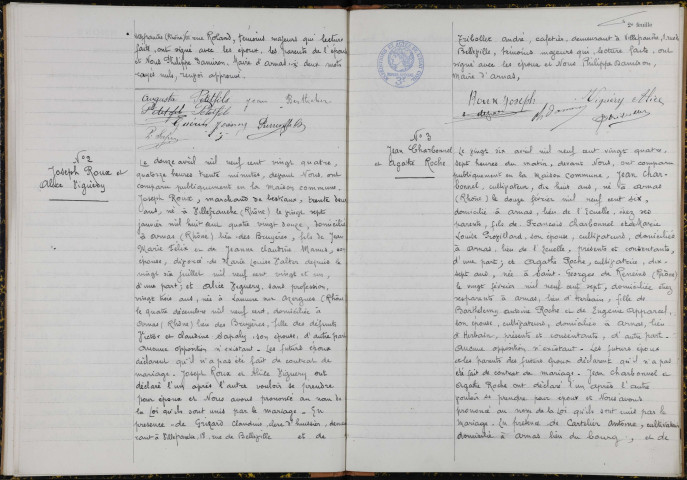 Villefranche (Rhône) 60 rue Roland, témoins majeurs qui lecture
faite, ont signé avec les époux, les parents de l'époux
et Nous Philippe Damiron, Maire d'Arnas. deux mots
rayés nuls, renvoi approuvé.
Auguste Petitfils Jean Berthelon
N° 2
Joseph Roux et
Alice Viguery
Le douze avril mil neuf cent vingt quatre,
quatorze heures trente minutes, devant Nous, ont
comparu publiquement en la maison commune.
Joseph Roux, marchand de bestiaux, trente deux
ans, né à Villefranche (Rhône) le vingt sept
janvier mil huit cent quatre vingt douze, domicilié
à Arnas (Rhône) lieu des Bruyères, fils de Jean
Marie Félix et de Jeanne Claudine Mamus, son
épouse, divorcé de Marie Louise depuis le
vingt six juillet mil neuf cent vingt et un,
d'une part; et Alice Viguery, sans profession,
vingt trois ans, née à Lamure sur Azergues (Rhône)
le quatre décembre mil neuf cent, domiciliée à
Arnas (Rhône) lieu des Bruyères, fille des défunts
Victor et Claudine Sapaly, son épouse, d'autre part.
Aucune opposition n'existant. Les futurs époux
déclarent qu'il n'a pas été fait de contrat de
mariage. Joseph Roux et Alice Viguery ont
déclaré l'un après l'autre vouloir se prendre
pour époux et Nous avons prononcé au nom de
la Loi qu'ils sont unis par le mariage. En
présence de Guizard Claudius, clerc d'huissier, demeu-
rant à Villefranche, 18, rue de Belleville et de
2e feuille
Tribollet André, cafetier, demeurant à Villefranche, rue de
Belleville, témoins majeurs qui, lecture faite, ont
signé avec les époux et Nous Philippe Damiron,
Maire d'Arnas,
Roux Joseph Viguery Alice
N° 3
Jean Charbonnel
et Agathe Roche
Le vingt six avril mil neuf cent vingt quatre,
sept heures du matin, devant Nous, ont comparu
publiquement en la maison commune, Jean Char-
bonnel, cultivateur, dix huit ans, né à Arnas
(Rhône) le douze février mil neuf cent six,
domicilié à Arnas, lieu de l'Ecuelle, chez ses
parents, fils de François Charbonnel et de Marie
Louise, son épouse, cultivateurs, domiciliés
à Arnas, lieu de l'Ecuelle, présents et consentants,
d'une part; et Agathe Roche, cultivatrice, dix-
sept ans, née à Saint Georges de Reneins (Rhône)
le vingt février mil neuf cent sept, domiciliée chez
ses parents à Arnas, lieu d'Herbain, fille de
Barthélemy Antoine Roche et de Eugénie Apparcel,
son épouse, cultivateurs, domiciliés à Arnas, lieu
d'Herbain, présents et consentants, d'autre part.
Aucune opposition n'existant. Les futurs époux
et les parents des futurs époux déclarent qu'il n'a pas
été fait de contrat de mariage. Jean Charbonnel et
Agathe Roche ont déclaré l'un après l'autre
vouloir se prendre pour époux et Nous avons
prononcé au nom de la Loi qu'ils sont unis par le
mariage. En présence de Castelier Antoine, cultivateur
domicilié à Arnas lieu du bourg, et de